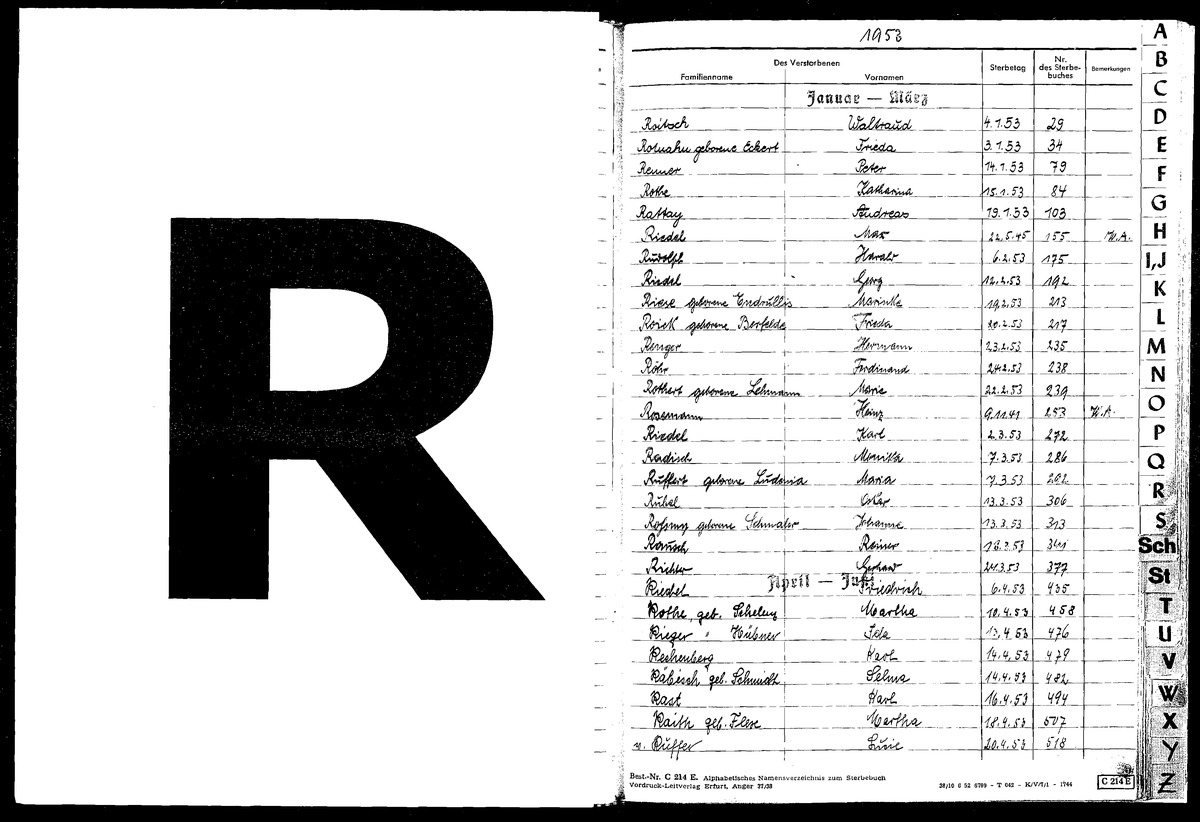 R
1953
Des Verstorbenen
Familienname Vornamen Sterbetag Nr. des Sterbe-buches Bemerkungen
Januar — März
Roitsch Waltraud 4.1.53 29
geborene Eckert Frieda 3.1.53 34
Renner Peter 14.1.53 79
Rothe Katharina 15.1.53 84
Rattay Andreas 19.1.53 103
Riedel Max 22.5.45 155 W.A.
Rudolph Harald 6.2.53 175
Riedel Georg 12.2.53 192
Riese geborene Endrullis 19.2.53 213
Roick geborene Berfelde Frieda 20.2.53 217
Renger Hermann 23.2.53 235
Röhr Ferdinand 24.2.53 238
Rothert geborene Lehmann Marie 22.2.53 239
Rosemann Heinz 9.11.41 253 W.A.
Riedel Karl 2.3.53 272
Radisch Monika 7.3.53 286
Ruffert geborene Maria 7.3.53
Rühel Oskar 13.3.53 306
geborene Johanne 13.3.53 313
Rausch Reiner
Richter Gerhard 24.3.53 377
April — Juni
Riedel Friedrich 6.4.53 435
Rothe, geb. Martha 10.4.53 458
Rieger " Hübner Ida 13.4.53 476
Rechenberg Karl 14.4.53 479
Räbisch geb. Schmidt Selma 14.4.53 482
Rast Karl 16.4.53 494
Raith geb. Martha 18.4.53 507
v. Ruffer 20.4.53 518
Best.-Nr. C 214 E. Alphabetisches Namensverzeichnis zum Sterbebuch
Vordruck-Leitverlag Erfurt, Anger 37/38
C 214 E
A
B
C
D
E
F
G
H
I,J
K
L
M
N
O
P
Q
R
S
Sch
St
T
U
V
W
X
Y
Z